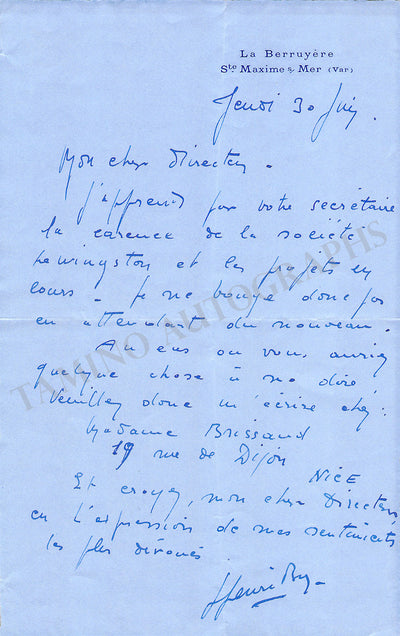 La Berruyère
Ste Maxime s/ Mer (Var)
Jeudi 30 Juin.
Mon cher Directeur.
J'apprends par votre secrétaire
la carence de la société
et les projets en
cours. Je ne bouge donc pas
en attendant du nouveau.
Au cas où vous auriez
quelque chose à me dire
Veuillez donc m'écrire chez:
Madame Brissaud
19 rue de Dijon
NICE
Et croyez, mon cher Directeur
en l'expression de mes sentiments
les plus dévoués
Henri
TAMINO AUTOGRAPHS